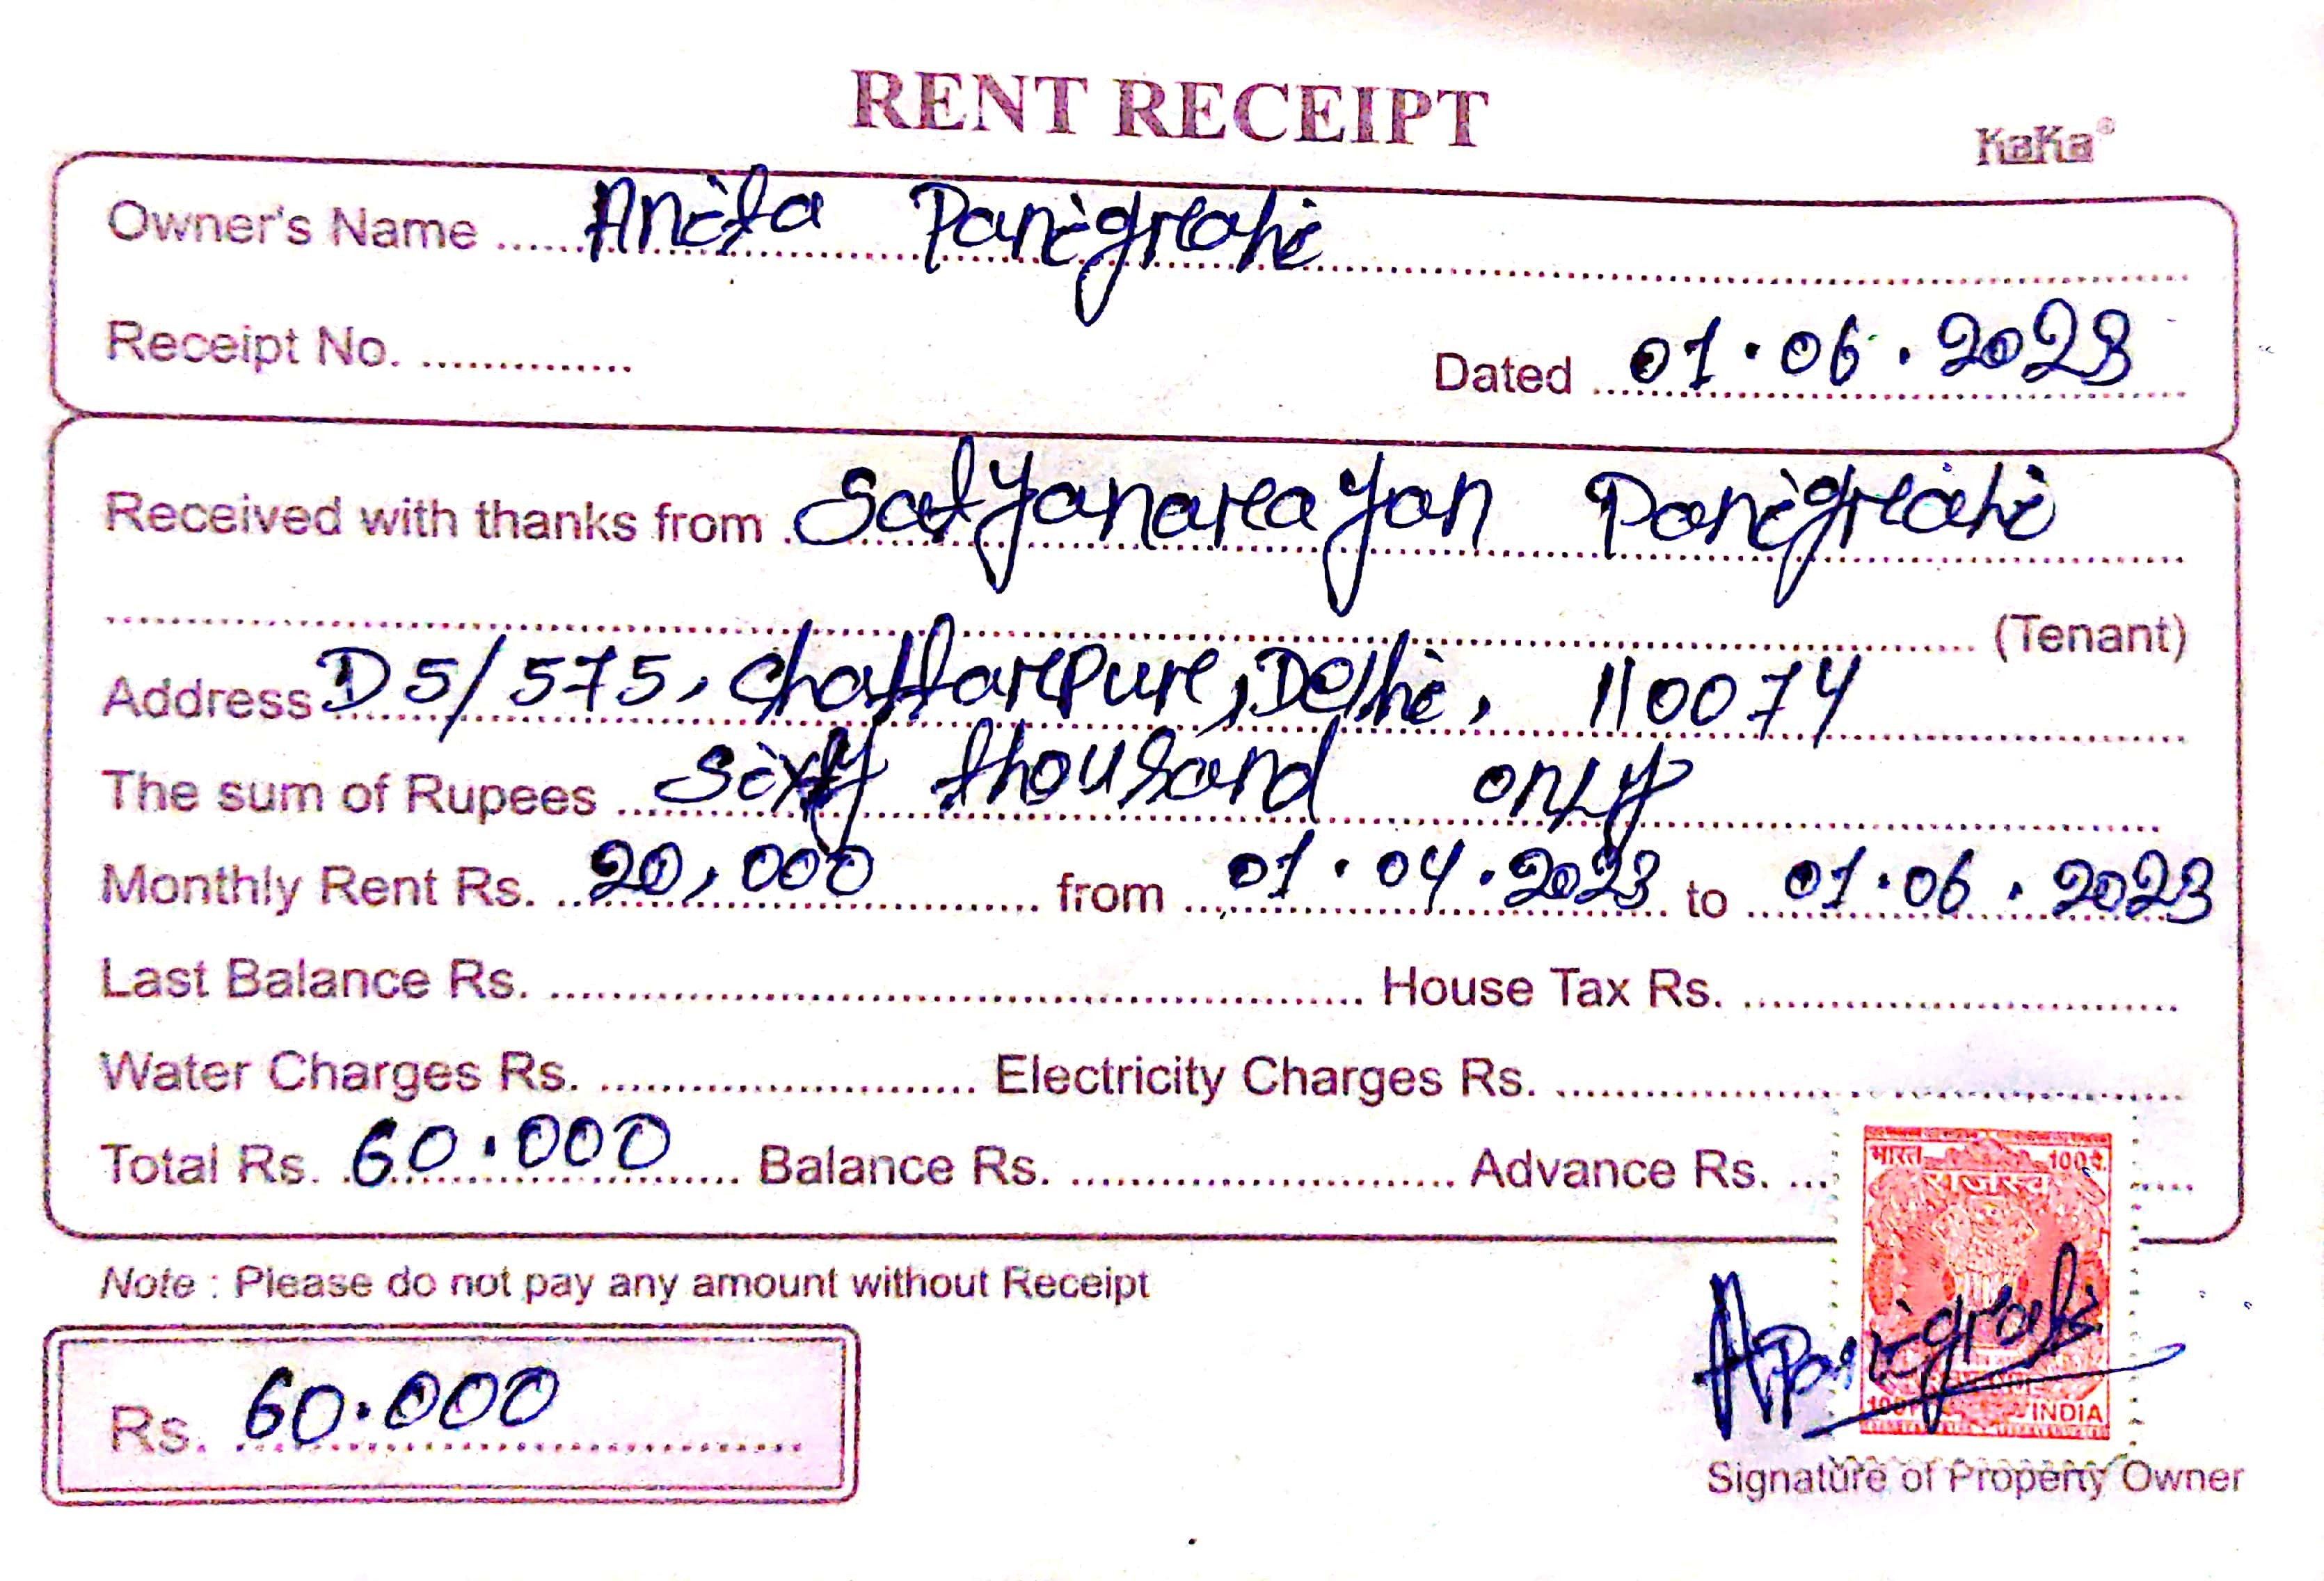 RENT RECEIPT
KaKa®
Owner's Name Anita Panigrahi
Receipt No. Dated 01.06.2023
Received with thanks from Satyanarayan Panigrahi
(Tenant)
Address D5/575, Chattarpur, Delhi, 110074
The sum of Rupees Sixty thousand only
Monthly Rent Rs. 20,000 from 01.04.2023 to 01.06.2023
Last Balance Rs. House Tax Rs.
Water Charges Rs. Electricity Charges Rs.
Total Rs. 60.000 Balance Rs. Advance Rs.
भारत 100पै.
राजस्व
Note : Please do not pay any amount without Receipt
Rs. 60.000
APanigrahi
INDIA
Signature of Property Owner